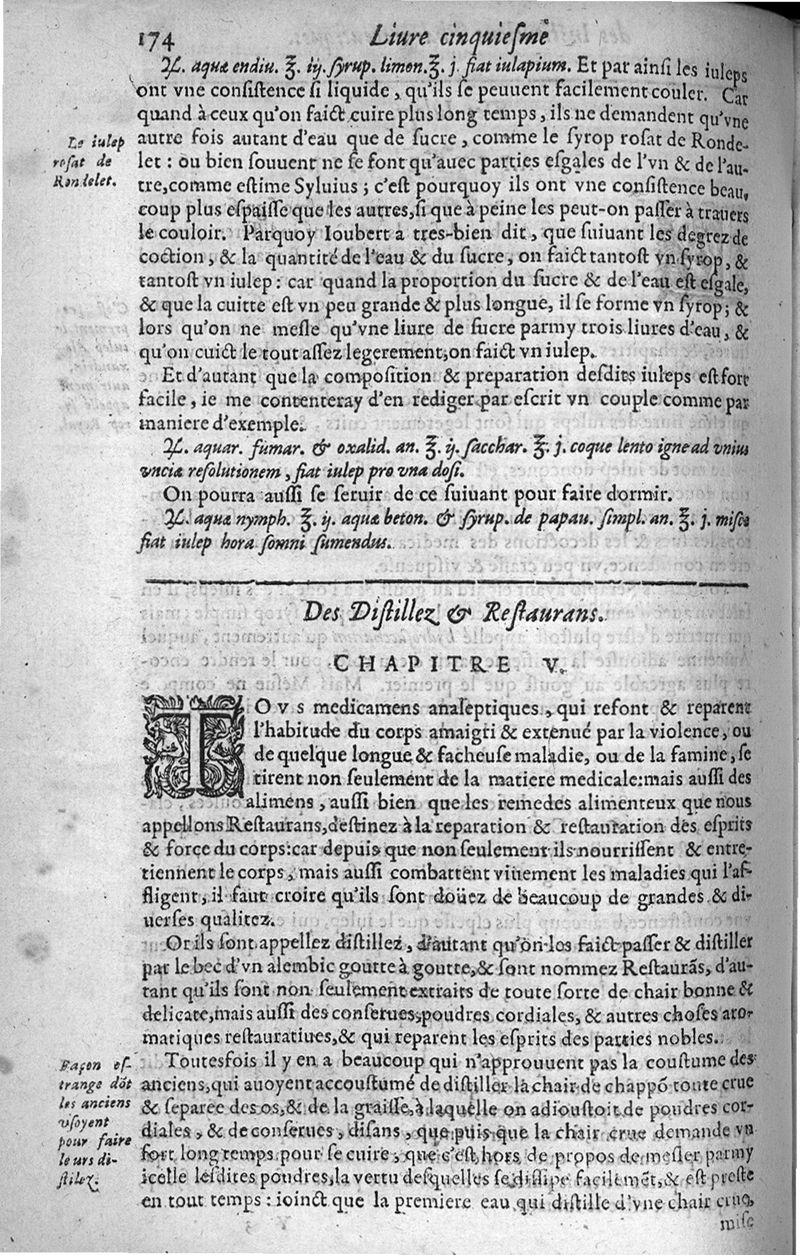 174 Liure cinquiesme
♃. aquæ endiu. ℥. iij. syrup. limon. ℥. j. fiat iulapium. Et par ainsi les iuleps
ont vne consistence si liquide, qu'ils se peuuent facilement couler. Car
quand à ceux qu'on faict cuire plus long temps, ils ne demandent qu'vne
autre fois autant d'eau que de sucre, comme le syrop rosat de Ronde-
let : ou bien souuent ne se font qu'auec parties esgales de l'vn & de l'au-
tre, comme estime Syluius ; c'est pourquoy ils ont vne consistence beau-
coup plus espaisse que les autres, si que à peine les peut-on passer à trauers
le couloir. Parquoy Ioubert a tres-bien dit, que suiuant les degrez de
coction, & la quantité de l'eau & du sucre, on faict tantost vn syrop, &
tantost vn iulep : car quand la proportion du sucre & de l'eau est esgale,
& que la cuitte est vn peu grande & plus longue, il se forme vn syrop ; &
lors qu'on ne mesle qu'vne liure de sucre parmy trois liures d'eau, &
qu'on cuict le tout assez legerement, on faict vn iulep.
Le iulep
rosat de
Rondelet.
Et d'autant que la composition & preparation desdits iuleps est fort
facile, ie me contenteray d'en rediger par escrit vn couple comme par
maniere d'exemple.
♃. aquar. fumar. & oxalid. an. ℥. ij. sacchar. ℥. j. coque lento igne ad vnius
vnciæ resolutionem, fiat iulep pro vna dosi.
On pourra aussi se seruir de ce suiuant pour faire dormir.
♃. aquæ nymph. ℥. ij. aquæ beton. & syrup. de papau. simpl. an. ℥. j. misce
fiat iulep hora somni sumendus.
Des Distillez & Restaurans.
CHAPITRE V.
TOVS medicamens analeptiques, qui refont & reparent
l'habitude du corps amaigri & extenué par la violence, ou
de quelque longue & facheuse maladie, ou de la famine, se
tirent non seulement de la matiere medicale: mais aussi des
alimens, aussi bien que les remedes alimenteux que nous
appellons Restaurans, destinez à la reparation & restauration des esprits
& force du corps: car depuis que non seulement ils nourrissent & entre-
tiennent le corps, mais aussi combattent viuement les maladies qui l'af-
fligent, il faut croire qu'ils sont doüez de beaucoup de grandes & di-
uerses qualitez.
Or ils sont appellez distillez, d'autant qu'on les faict passer & distiller
par le bec d'vn alembic goutte à goutte, & sont nommez Restaurãs, d'au-
tant qu'ils sont non seulement extraits de toute sorte de chair bonne &
delicate, mais aussi des conserues, poudres cordiales, & autres choses aro-
matiques restauratiues, & qui reparent les esprits des parties nobles.
Toutesfois il y en a beaucoup qui n'approuuent pas la coustume des
anciens, qui auoyent accoustumé de distiller la chair de chappõ toute crue
& separée des os, & de la graisse, à laquelle on adioustoit de poudres cor-
diales, & de conserues, disans, que puis que la chair crue demande vn
fort long temps pour se cuire, que c'est hors de propos de mesler parmy
icelle lesdites poudres, la vertu desquelles se dissipe facilemẽt, & est preste
en tout temps : ioinct que la premiere eau qui distille d'vne chair crue,
Façon es-
trange dõt
les anciens
vsoyent
pour faire
leurs di-
stilez.
mise